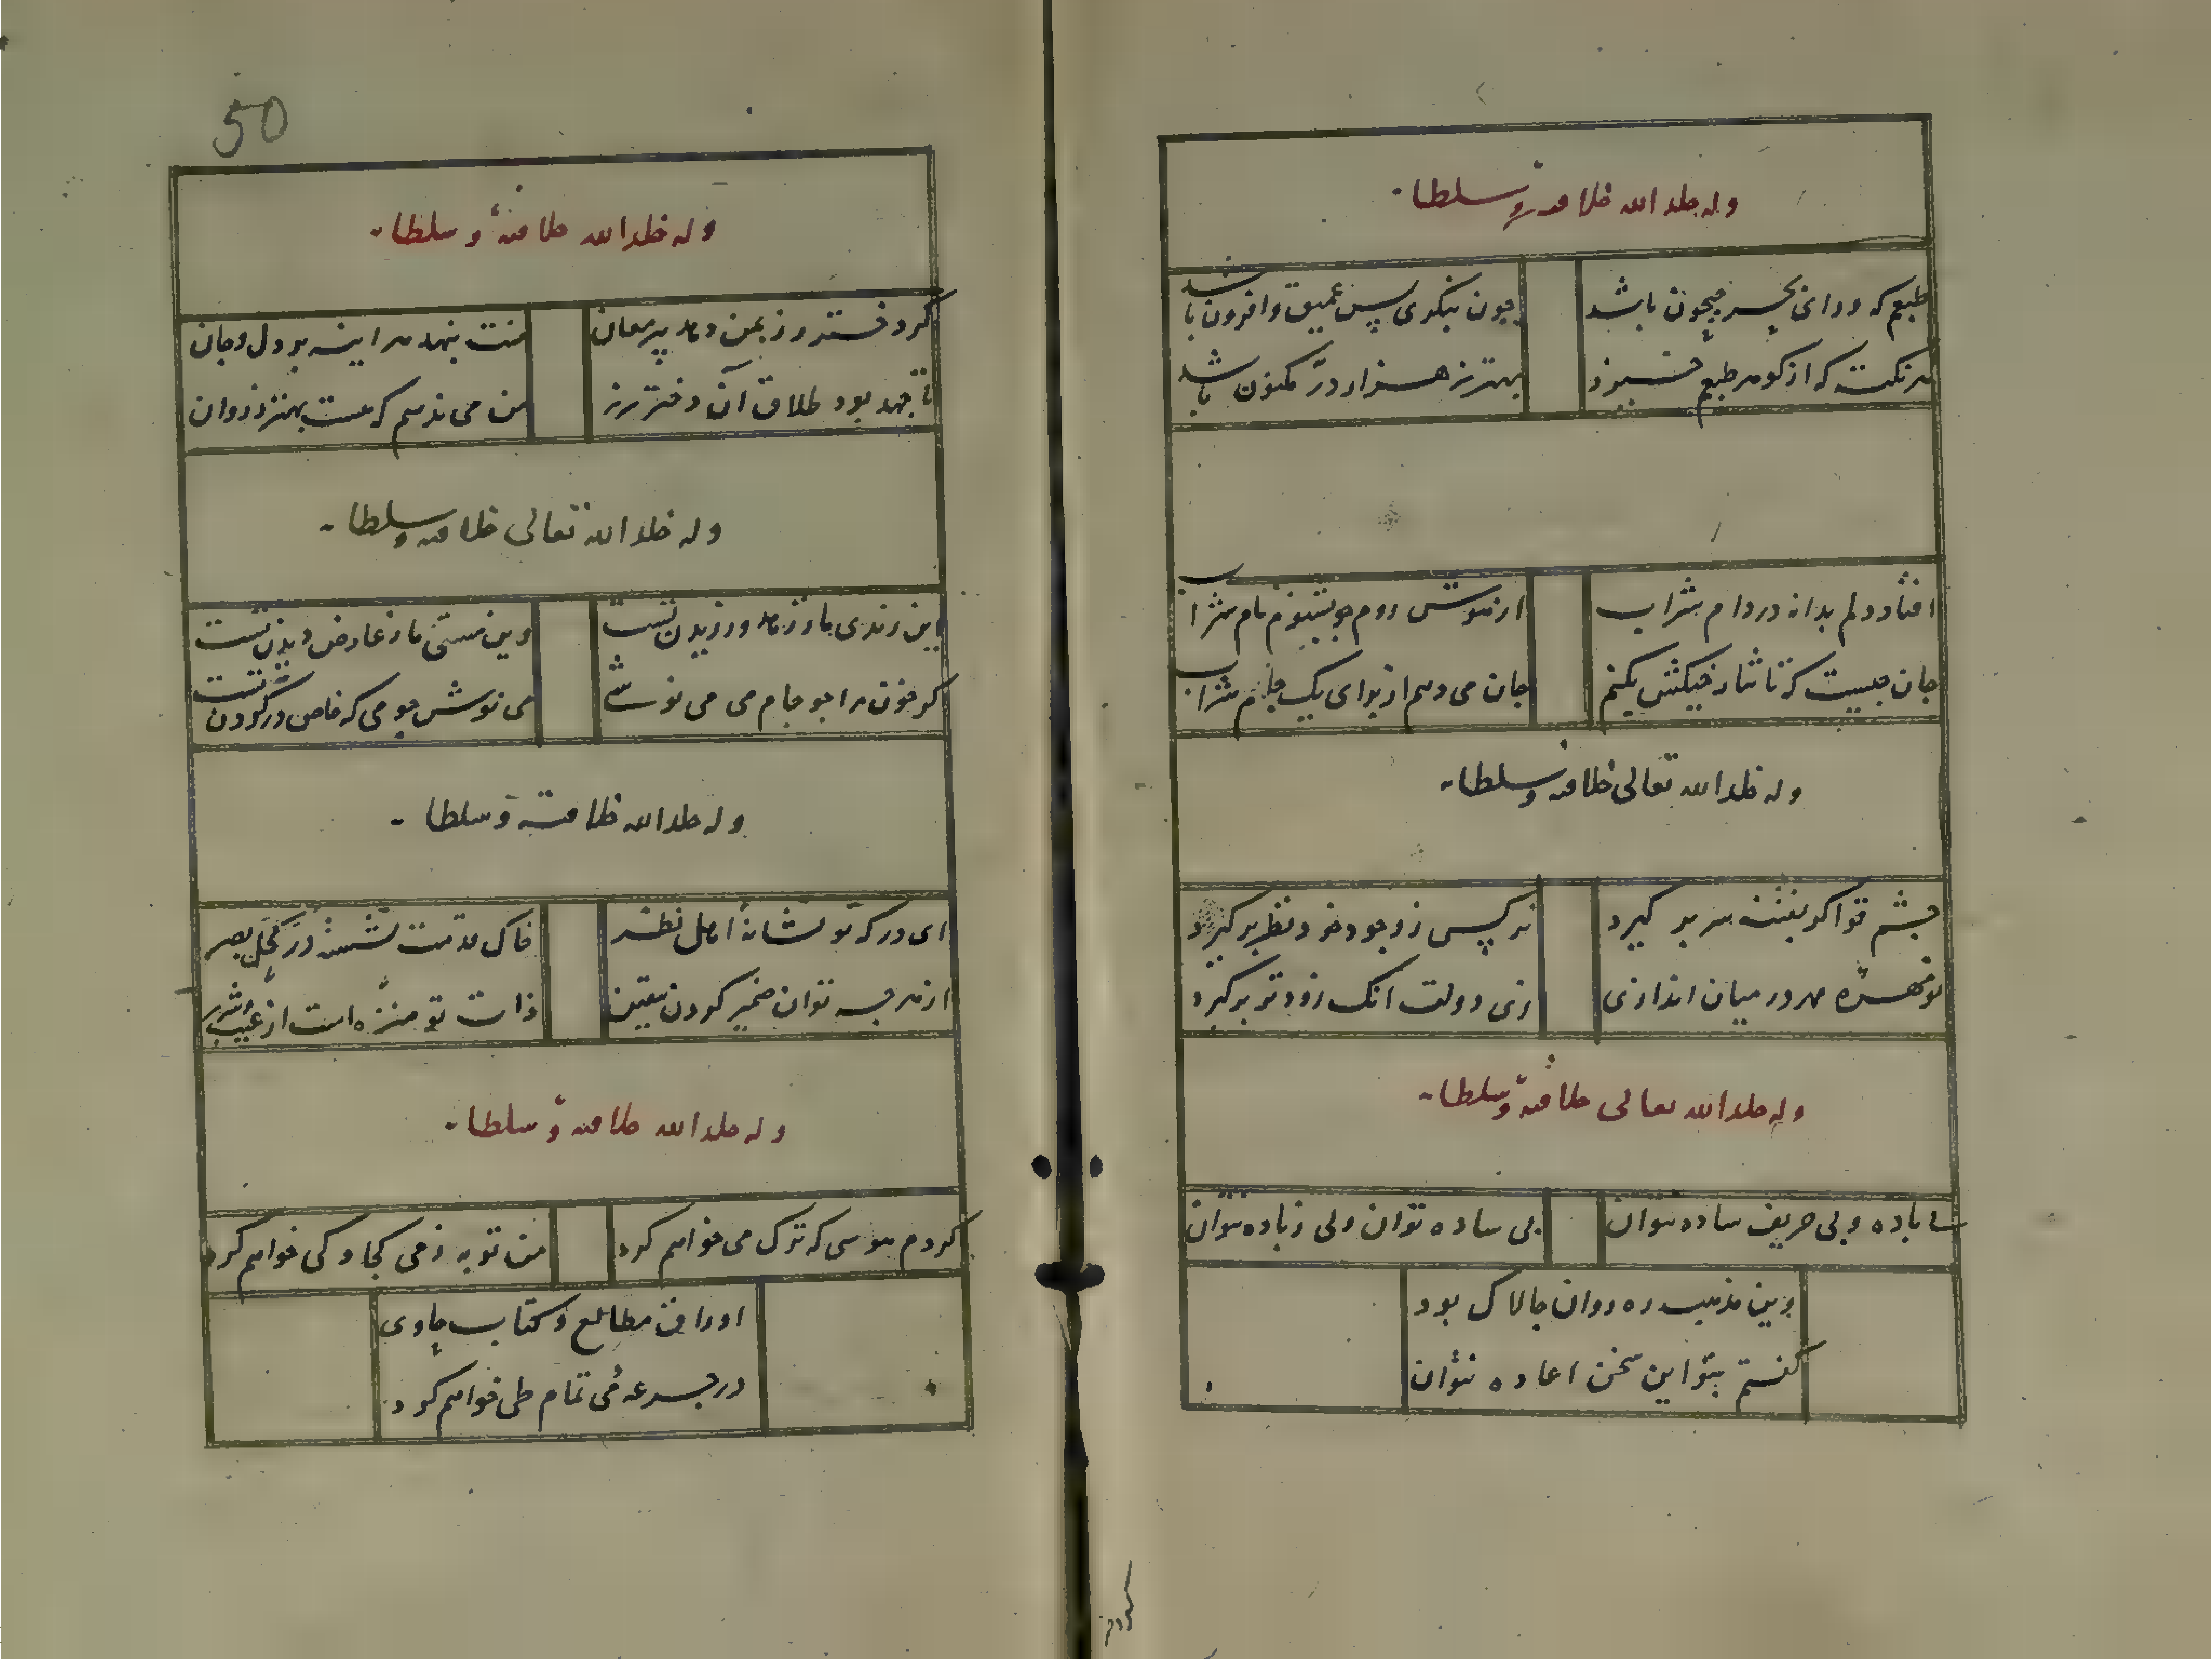 وله خلد الله خلافته وسلطانه
طبعم که ورای بحر جیحون باشد چون بنگری بس عمیق وافزون باشد
هر نکته که از گوهر طبعم خیزد بهتر ز هزار در مکنون باشد
افتاد دلم بدانه در دام شراب از هوش روم چو بشنوم نام شراب
جان چیست که تا نثار خیکش بکنم جان می دهم از برای یک جام شراب
وله خلد الله تعالی خلافته وسلطانه
چشم تو اگر بفتنه سر بر گیرد نرگس ز وجود خود نظر بر گیرد
تو مهره مهر در میان اندازی زی دولت آنک زودتر برگیرد
وله خلد الله تعالی خلافته وسلطانه
بی باده و بی حریف ساده نتوان بی ساده توان ولی ز باده نتوان
وین مذهب ره روان چالاک بود
گفتم بتو این سخن اعاده نتوان
50
وله خلد الله خلافته وسلطانه
گر دختر رز بمن دهد پیر مغان منت بنهد مرا بود دل وجان
تا جهد بود طلاق آن دختر رز من می ندهم که هست بهتر ز روان
وله خلد الله تعالی خلافته وسلطانه
این رندی ما ز زهد ورزیدن تست وین مستی ما ز عارض دیدن تست
گر خون مرا چو جام می می نوشی می نوش چو می که خاص در گردن تست
وله خلد الله خلافته وسلطانه
ای درگه تو نشانه اهل نظر خاک قدمت نشسته در کحل بصر
از هر چه توان ضمیر کردن بیقین ذات تو منزه است از عیب وشرر
وله خلد الله خلافته وسلطانه
کردم هوسی که ترک می خواهم کرد من توبه ز می کجا و کی خواهم کرد
اوراق مطالع و کتاب حاوی
در جرعه می تمام طی خواهم کرد